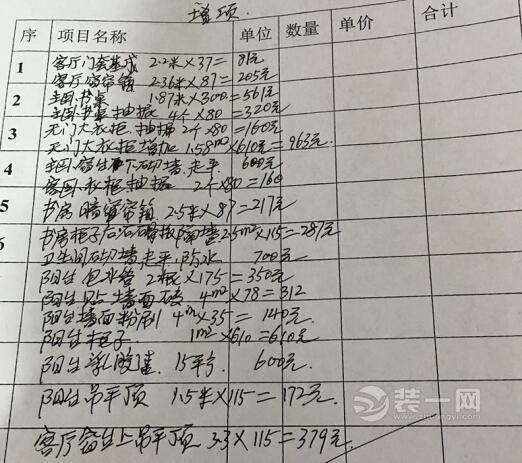 增项
序 项目名称 单位 数量 单价 合计
1 客厅门套基成 2.2米×37= 81元
客厅窗帘箱 2.36米×87=205元
2 主卧书桌 1.87米×300=561元
主卧书桌抽屉 4个×80=320元
3 无门大衣柜抽屉 2个×80=160元
无门大衣柜增加 1.58m²×610元=963元
4 主卧 下砌墙.走平 600元
客卧衣柜抽屉 2个×80=160
5 书房暗窗帘箱 2.5米×87=217元
6 书房柜子后石膏板隔墙2.5m²×115=287元
卫生间砌墙走平,防水 700元
阳台包水管 2根×175=350元
阳台贴墙面砖 4m²×78=312
阳台墙面粉刷 4m²×35=140元
阳台柜子 1m²×610=610元
阳台乳胶漆 15平方 600元
阳台吊平顶 1.5米×115=172元
客厅窗台上吊平顶 3.3×115=379元
装一网
www.zhuangyi.com